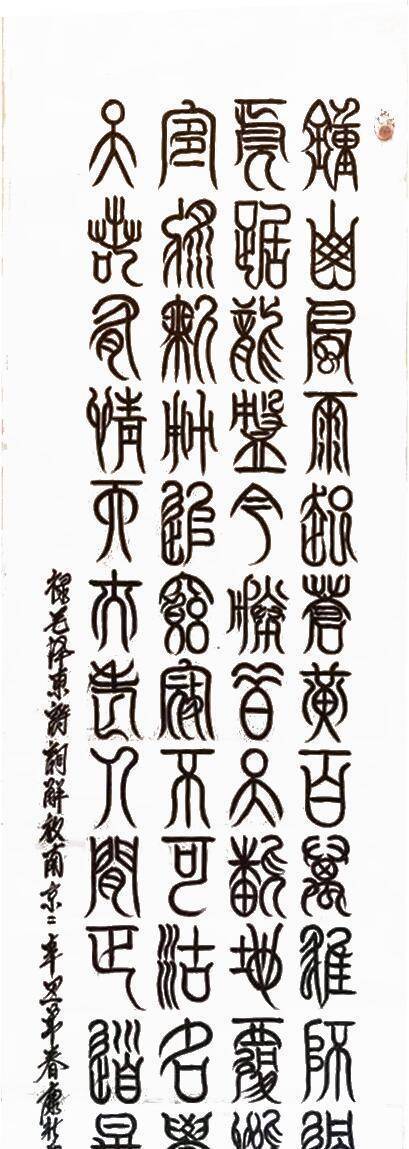 鐘山風雨起蒼黃百萬雄師過
虎踞龍盤今勝昔天翻地覆慨
宜將剩勇追窮寇不可沽名學
天若有情天亦老人間正道是
錄毛澤東詩詞解放南京二辛丑年春